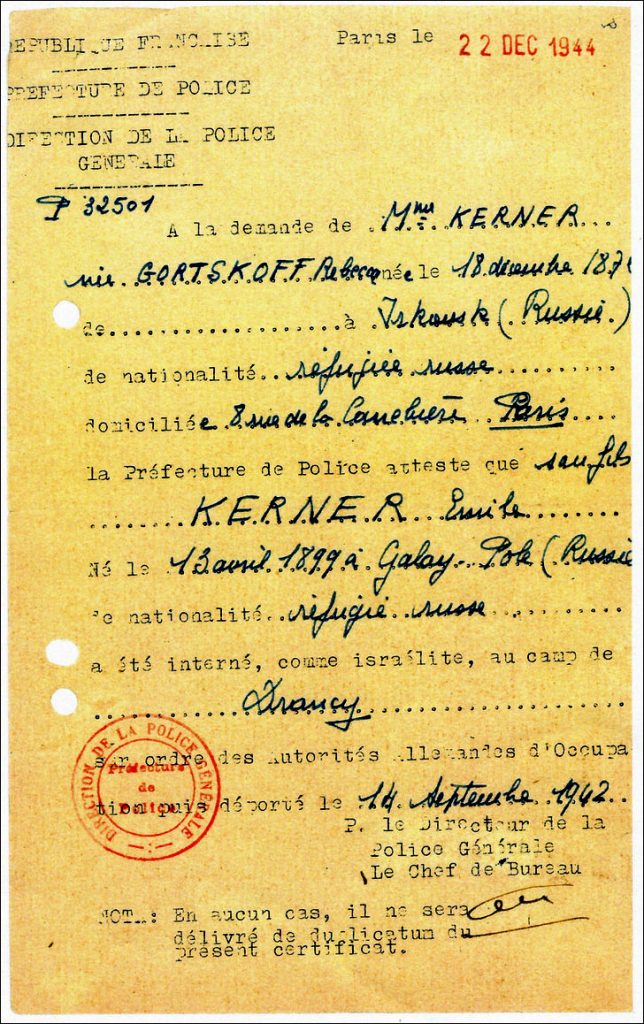 REPUBLIQUE FRANCAISE
Paris le 22 DEC 1944
PREFECTURE DE POLICE
DIRECTION DE LA POLICE
GENERALE
P 32501
A la demande de Mme KERNER
née GORTSKOFF Rebecca née le 18 décembre 187
de à (Russie)
de nationalité réfugiée russe
domiciliée 8 rue de la Canebière Paris
la Préfecture de Police atteste que son fils
KERNER Emile
Né le 13 avril 1899 à Galay-Pole (Russie
de nationalité réfugié russe
a été interné, comme israélite, au camp de
Drancy
sur ordre des Autorités Allemandes d'Occupa
tion puis déporté le 14 Septembre 1942
DIRECTION DE LA POLICE GÉNÉRALE
Préfecture
de
Police
P. le Directeur de la
Police Générale
Le Chef de Bureau
NOTA: En aucun cas, il ne sera
délivré de duplicatum du
présent certificat.